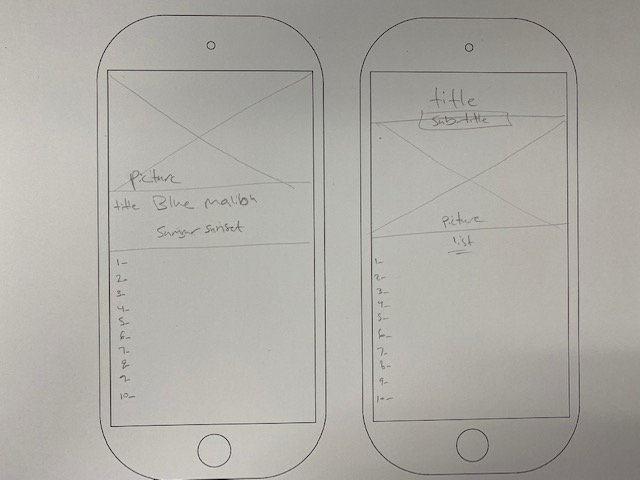 Picture
title Blue malibu
sunset
1-
2-
3-
4-
5-
6-
7-
8
9-
10-
title
Sub-title
Picture
list
1-
2-
3-
4-
5-
6-
7-
8-
9-
10-